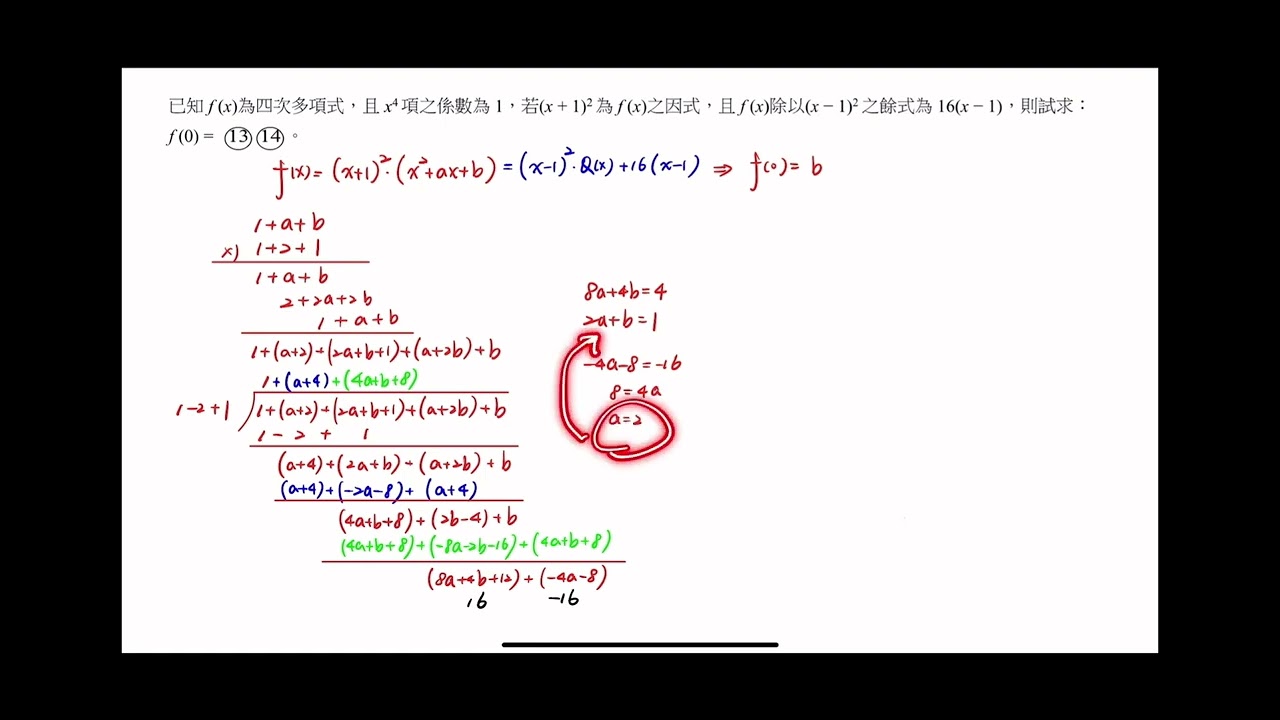 已知 f (x)為四次多項式,且 x⁴ 項之係數為 1,若(x + 1)² 為 f (x)之因式,且 f (x)除以(x − 1)² 之餘式為 16(x − 1),則試求:
f (0) = ⑬⑭。
f(x) = (x+1)²·(x²+ax+b) = (x-1)²·Q(x)+16(x-1) ⇒ f(0) = b
1+a+b
x) 1+2+1
1+a+b
2+2a+2b
1+a+b
1+(a+2)+(2a+b+1)+(a+2b)+b
1+(a+4)+(4a+b+8)
1-2+1 1+(a+2)+(2a+b+1)+(a+2b)+b
1-2+1
(a+4)+(2a+b)+(a+2b)+b
(a+4)+(-2a-8)+(a+4)
(4a+b+8)+(2b-4)+b
(4a+b+8)+(-8a-2b-16)+(4a+b+8)
(8a+4b+12)+(-4a-8)
16 -16
8a+4b=4
2a+b=1
-4a-8=-16
8=4a
a=2